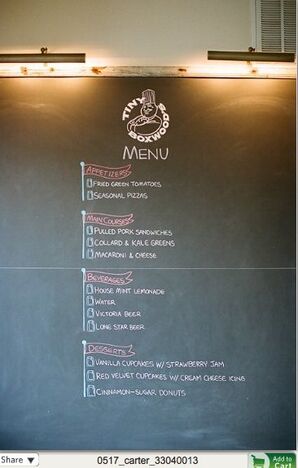 TINY
BOXWOOD'S
MENU
APPETIZERS
FRIED GREEN TOMATOES
SEASONAL PIZZAS
MAIN COURSES
PULLED PORK SANDWICHES
COLLARD & KALE GREENS
MACARONI & CHEESE
BEVERAGES
HOUSE MINT LEMONADE
WATER
VICTORIA BEER
LONE STAR BEER
DESSERTS
VANILLA CUPCAKES W/ STRAWBERRY JAM
RED VELVET CUPCAKES W/ CREAM CHEESE ICING
CINNAMON-SUGAR DONUTS
Share ▼ 0517_carter_33040013 Add to Cart